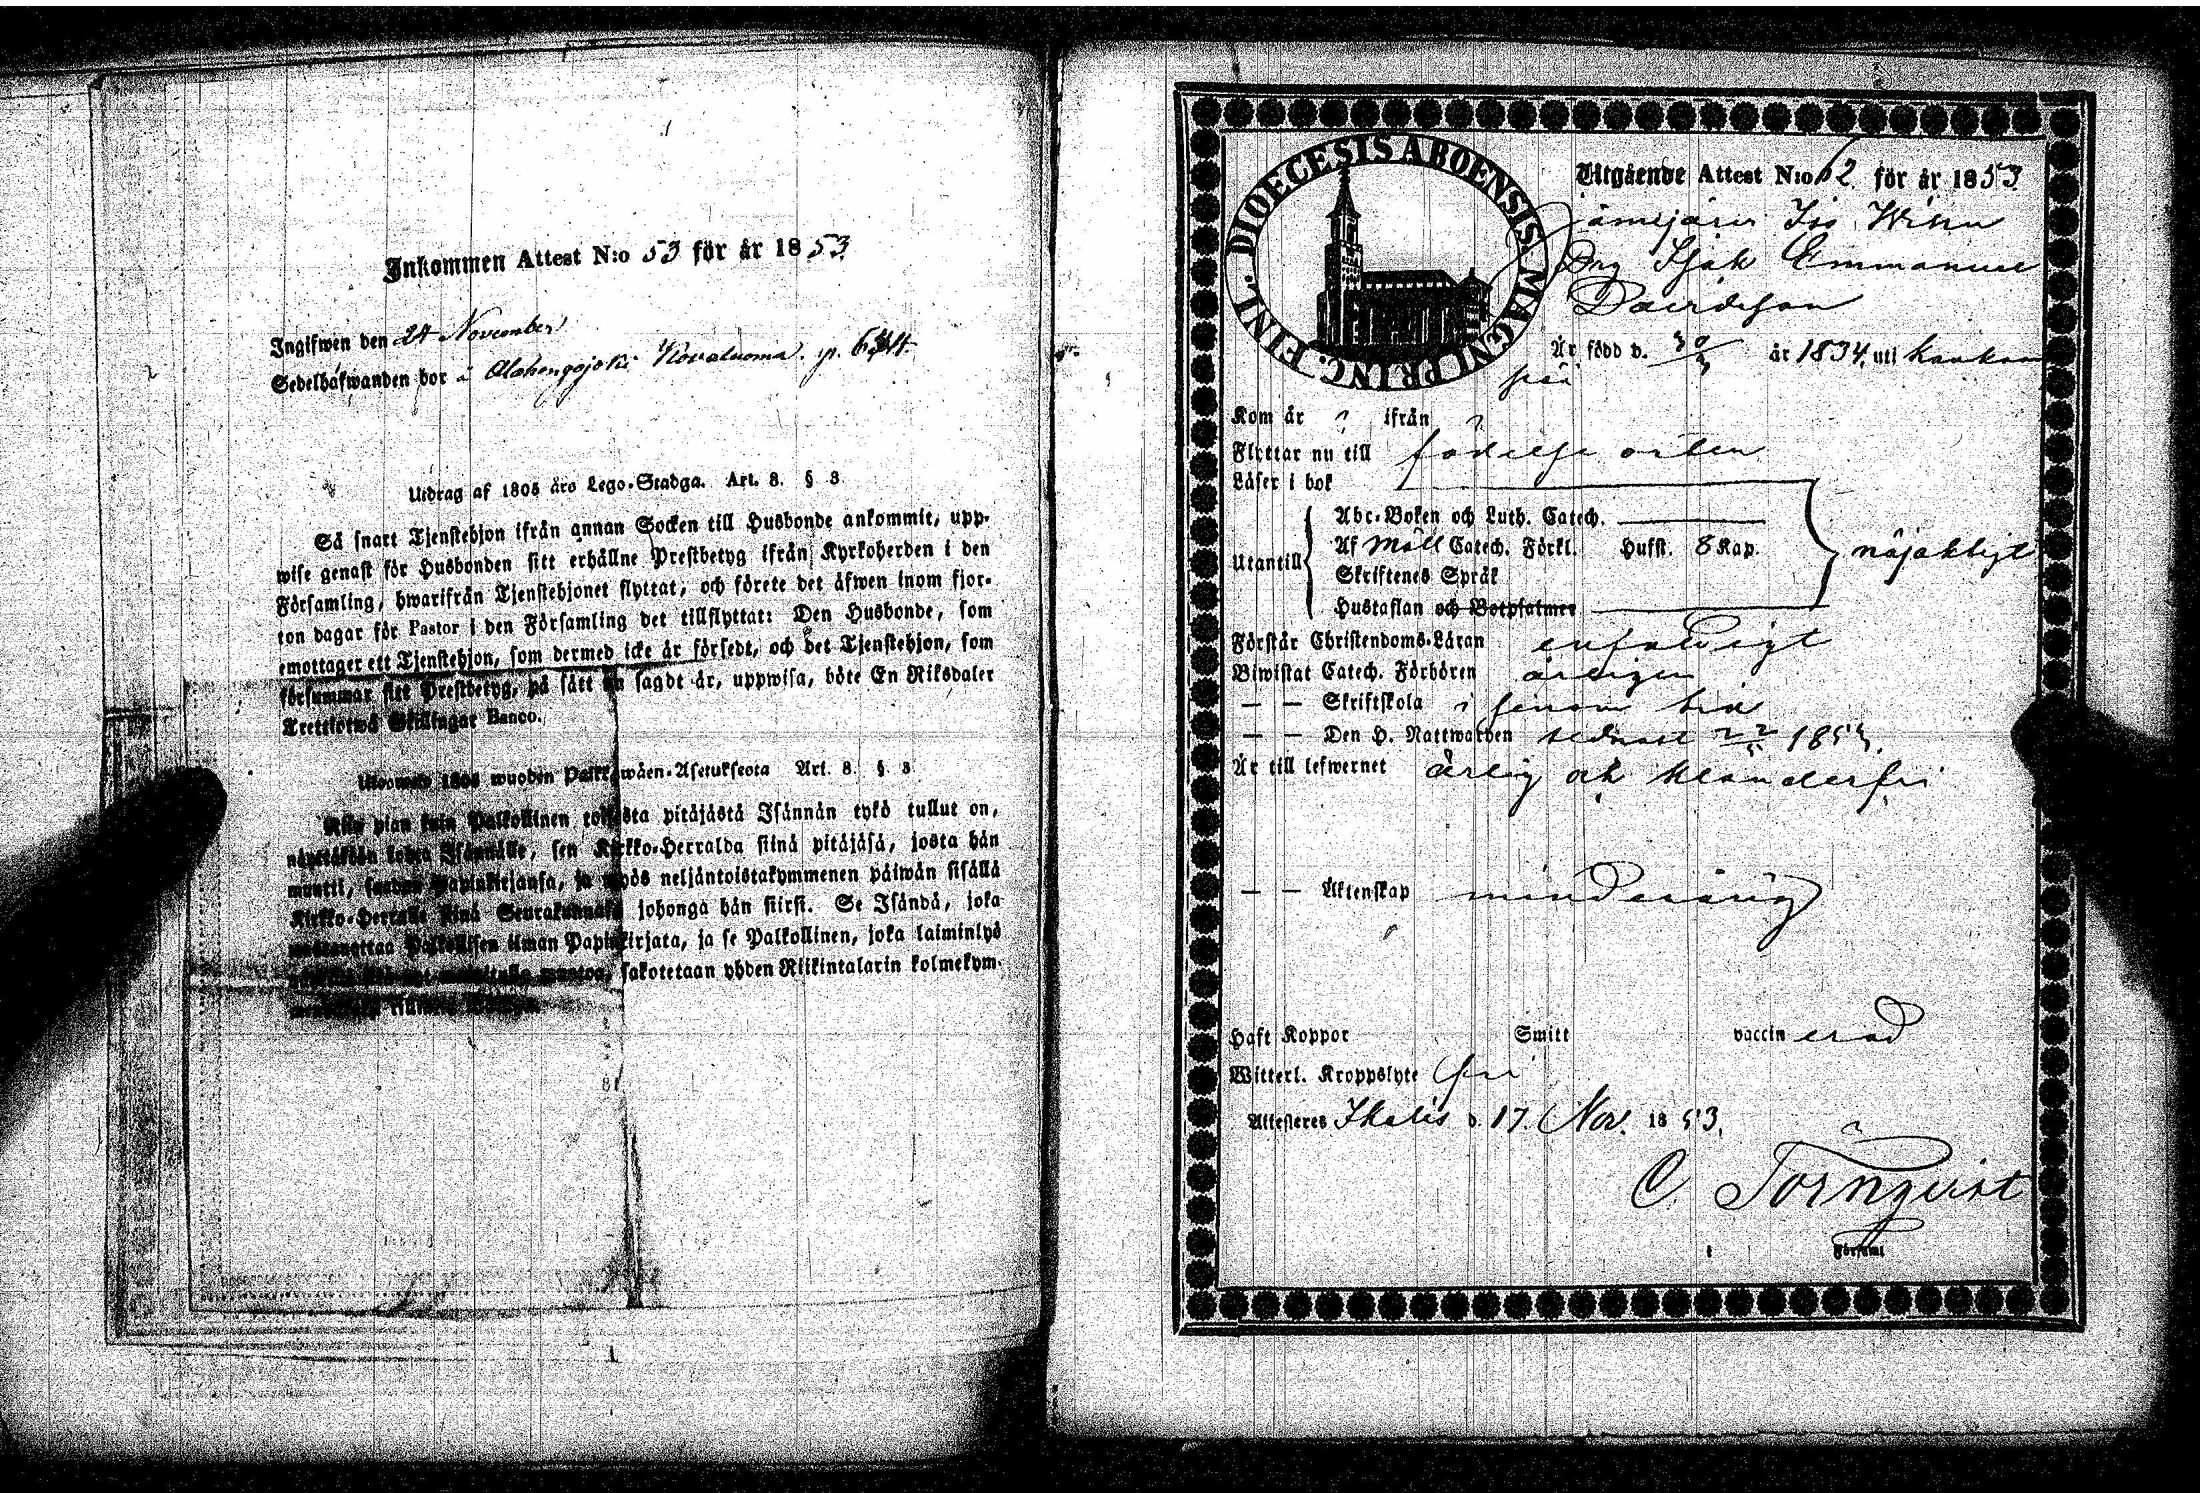 Inkommen Attest N:o 53 för år 1853
Ingifwen den 24 November
Sedelhafwanden bor å Alahongojoki Kovaluoma. p.
Utdrag af 1805 års Lego-Stadga. Art. 8. § 3
Så snart Tjenstehjon ifrån annan Socken till Husbonde ankommit, upp-
wise genast för Husbonden sitt erhållne Prestbetyg ifrån Kyrkoherden i den
Församling, hwarifrån Tjenstehjonet flyttat, och förete det äfwen inom fjor-
ton dagar för Pastor i den Församling det tillflyttat: Den Husbonde, som
emottager ett Tjenstehjon, som dermed icke är försedt, och det Tjenstehjon, som
försummar sitt Prestbetyg, på sätt nu sagdt är, uppwisa, böte En Riksdaler
Trettiotwå Skillingar Banco.
1805 wuoden Palkkawäen-Asetuksesta Art. 8. § 3
Niin pian kuin Palkollinen toisesta pitäjästä Isännän tykö tullut on,
näyttäkään kohta Isännälle, sen Kirkko-Herralda siinä pitäjäsä, josta hän
muutti, saadun Papinkirjansa, ja myös neljäntoistakymmenen päiwän sisällä
Kirkko-Herralle siinä Seurakunnasa johonga hän siirsi. Se Isändä, joka
wastaanottaa Palkollisen ilman Papinkirjata, ja se Palkollinen, joka laiminlyö
sakotetaan yhden Riikintalarin kolmekym-
DIOECESIS ABOENSIS MAGNI PRINC. FINL.
Utgående Attest N:o 62 för år 1853
Drg Isak Emmanuel
Davidsson
Är född d. 30/3 år 1834, uti Kankaan
pää
Kom år ? ifrån ?
Flyttar nu till födelse orten
Läser i bok
Abc-Boken och Luth. Catech.
Utantill Af Möll Catech. Förkl. Hufst. 8 Kap. nöjaktligt
Skriftenes Språk
Hustaflan och Botpsalmer
Förstår Christendoms-Läran enfaldigt
Biwistat Catech. Förhören årligen
— — Skriftskola i sinom tid
— — Den H. Nattwarden sednast 22/5 1853.
Är till lefwernet ärlig och klanderfri
— — Äktenskap minderårig
Haft Koppor Smitt vaccin erad
Witterl. Kroppslyte fri
Attesteres Ikalis d. 17. Nov. 1853.
C. Törnqvist
i Församl